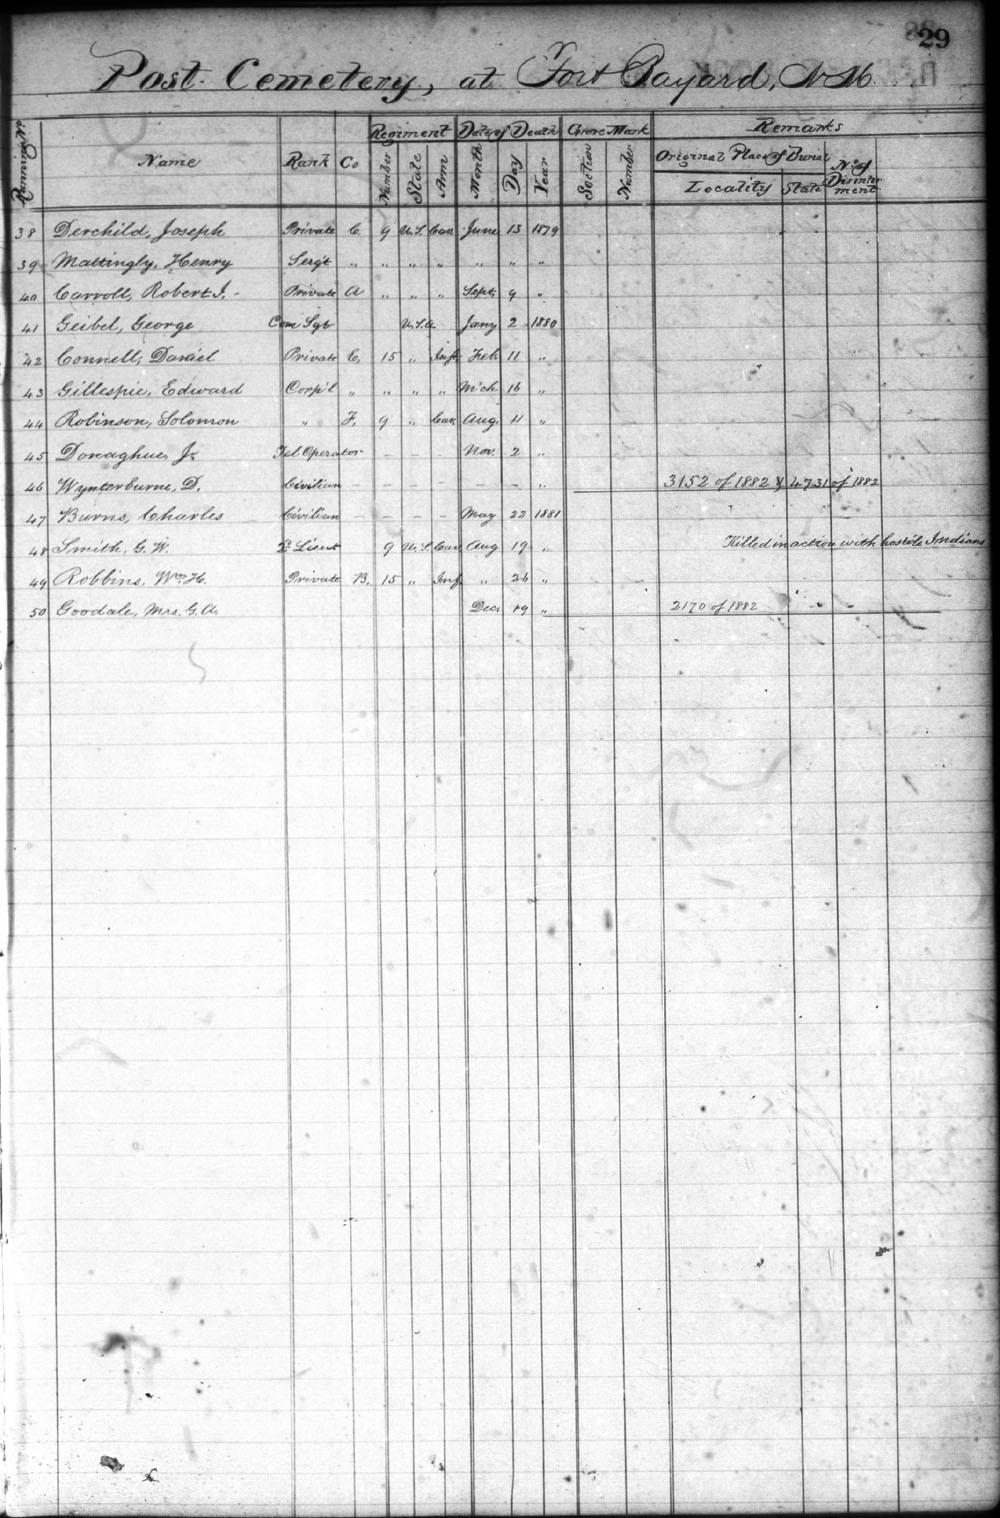 29
Post Cemetery, at Fort Bayard, N.M.
Running No. Name Rank Co Regiment Date of Death Grave Mark Remarks
Number State Arm Month Day Year Section Number Original Place of Burial No. of Disinterment
Locality State
38 Derchild, Joseph Private C. 9 U.S. Cav. June 13 1879
39 Mattingly, Henry Serg't " " " " " " "
40 Carroll, Robert J. Private A " " " Sept. 9 "
41 Geibel, George Com Sgt U.S.A. Jany 2 1880
42 Connell, Daniel Private C. 15 " Inft. Feb. 11 "
43 Gillespie, Edward Corp'l " " " " Mch 16 "
44 Robinson, Solomon " F. 9 " Cav. Aug. 11 "
45 Donaghue, J. Tel Operator - - - Nov. 2 "
46 Wynterburne, D. Civilian - - - - - - " 3152 of 1882 & 4731 of 1882
47 Burns, Charles Civilian - - - - May 22 1881
48 Smith, G. W. 2d Lieut 9 U.S. Cav. Aug 19 " Killed in action with hostile Indians
49 Robbins, Wm H. Private B. 15 " Inf. " 26 "
50 Goodale, Mrs. G. A. Dec. 19 " 2170 of 1882